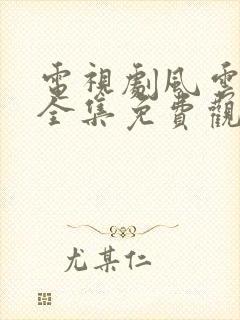 電視劇風雲
全集免費觀
尤某仁